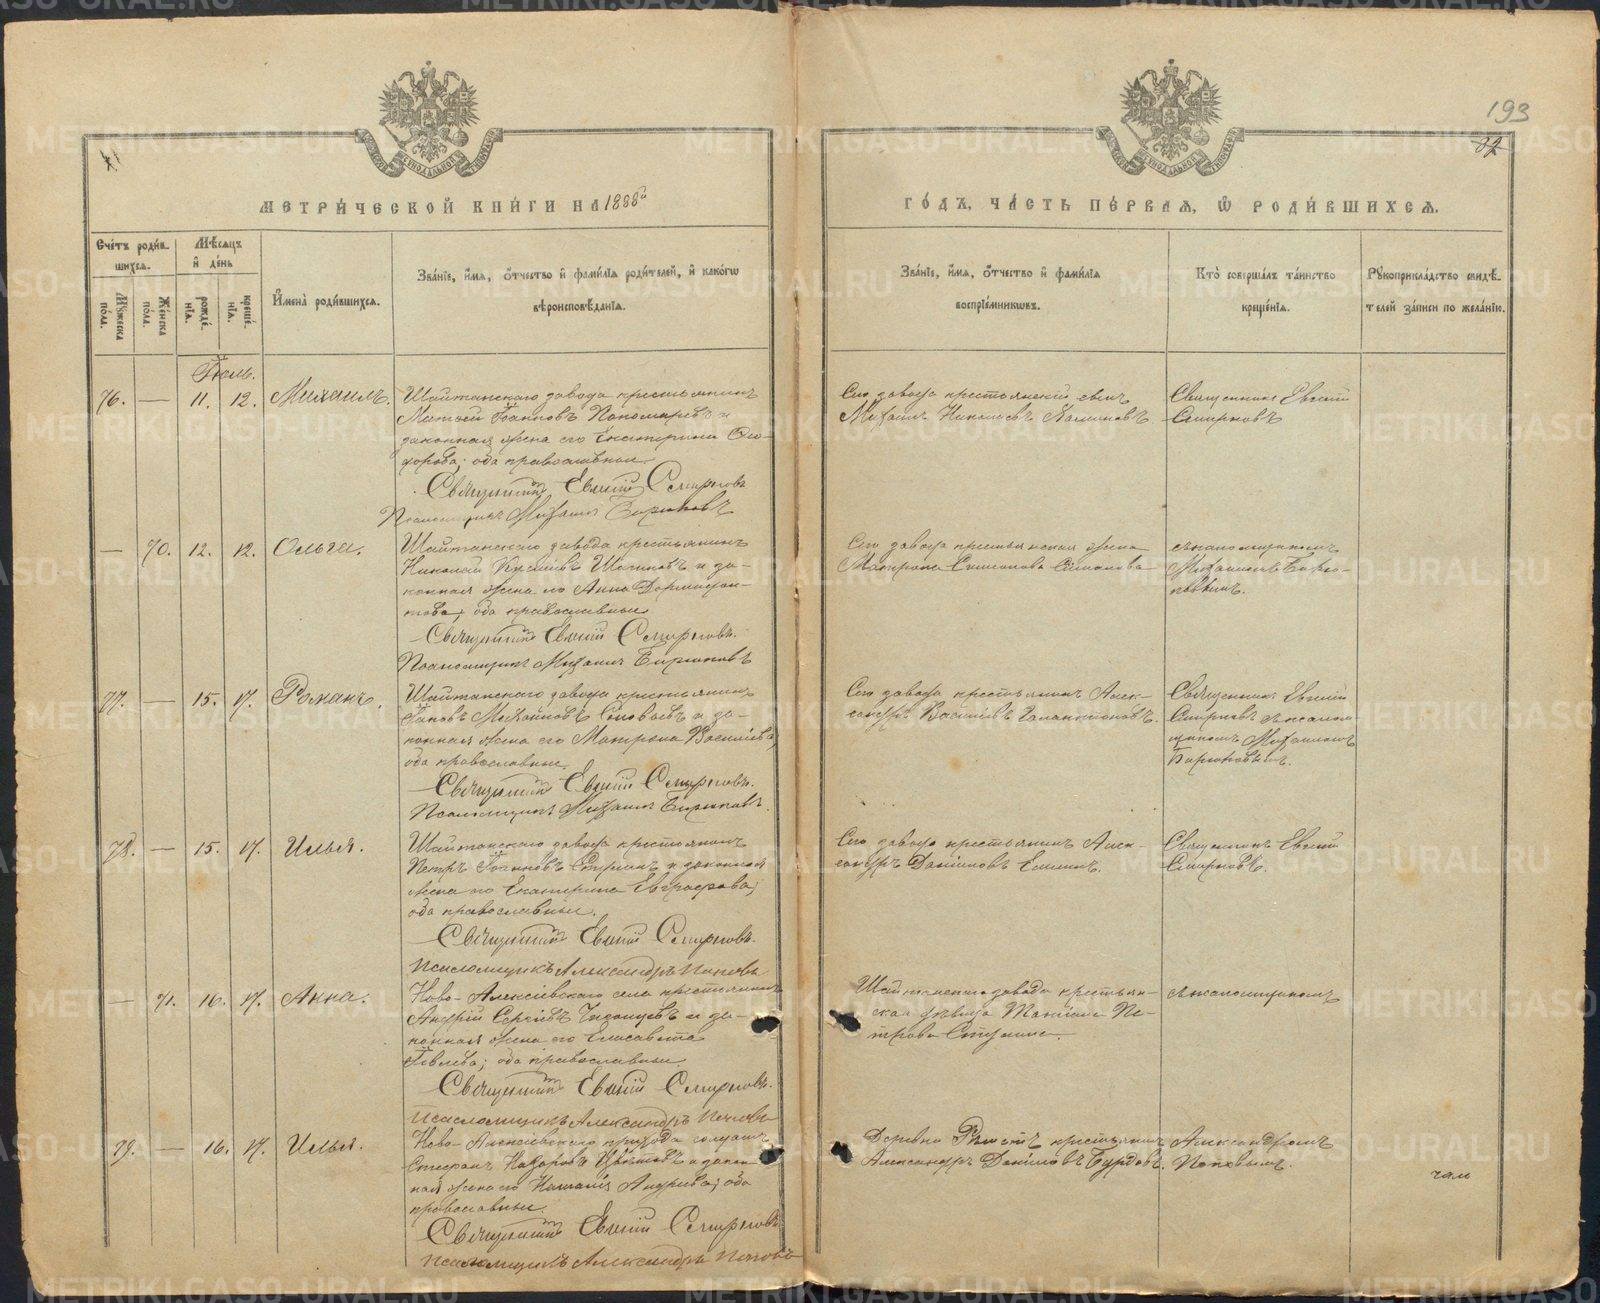 193
МЕТРИ́ЧЕСКОЙ КНИ́ГИ НА 1888й
ГО́ДЪ, ЧА́СТЬ ПЕ́РВАЯ, Ѡ РОДИ́ВШИХСЯ.
Счетъ роди́вшихся.
Мѣ́сяцъ и де́нь
Мꙋ́жеска по́ла.
Же́нска по́ла.
рожде́нія.
креще́нія.
Имена̀ роди́вшихся.
Зва́ніе, и́мя, о́тчество и фами́лія роди́телей, и како́гѡ
вѣроисповѣ́данія.
Зва́ніе, и́мя, о́тчество и фами́лія
воспріе́мниковъ.
Кто̀ соверша́лъ та́инство
креще́нія.
Рꙋкоприкла́дство свидѣ́-
телей за́писи по жела́нію.
Іюль.
76. — 11. 12. Михаилъ.
Шайтанскаго завода крестьянинъ
Іоанновъ Пономаревъ и
законная жена его Екатерина
оба православные.
Священникъ Евгеній Смирновъ
Псаломщикъ Михаилъ Бирюковъ
Сего завода крестьянскій сынъ
Михаилъ Николаевъ
Священникъ Евгеній
Смирновъ
— 70. 12. 12. Ольга.
Шайтанскаго завода крестьянинъ
Николай и за-
конная жена его Анна
оба православные
Священникъ Евгеній Смирновъ.
Псаломщикъ Михаилъ Бирюковъ
Сего завода крестьянская жена
Матрона
съ псаломщикомъ
Михаиломъ Бирю-
ковымъ.
77. — 15. 17. Романъ.
Шайтанскаго завода крестьянинъ
Михайловъ Соловьевъ и за-
конная жена его Матрона Васильева,
оба православные.
Священникъ Евгеній Смирновъ.
Псаломщикъ Михаилъ Бирюковъ.
Сего завода крестьянинъ Алек-
сандръ Васильевъ Галактіоновъ.
Священникъ Евгеній
Смирновъ съ псалом-
щикомъ Михаиломъ
Бирюковымъ.
78. — 15. 17. Илья.
Шайтанскаго завода крестьянинъ
Петръ Іоанновъ и законная
жена его Екатерина Евграфова;
оба православные.
Священникъ Евгеній Смирновъ.
Псаломщикъ Александръ Поповъ
Сего завода крестьянинъ Алек-
сандръ Даниловъ
Священникъ Евгеній
Смирновъ.
— 71. 16. 17. Анна.
Ново-Алексіевскаго села крестьянинъ
Андрей Сергіевъ и за-
конная жена его Елисавета
оба православные
Священникъ Евгеній Смирновъ.
Псаломщикъ Александръ Поповъ
Шайтанскаго завода крестьян-
ская дѣвица Пе-
трова
съ псаломщикомъ
79. — 16. 17. Илья.
Ново-Алексіевскаго прихода солдатъ
Стефанъ Назаровъ и закон-
ная жена его Наталія Андреева; оба
православные.
Священникъ Евгеній Смирновъ
Псаломщикъ Александръ Поповъ
Деревни крестьянинъ
Александръ Даниловъ
Александромъ
Поповымъ.
METRIKI.GASO-URAL.RU